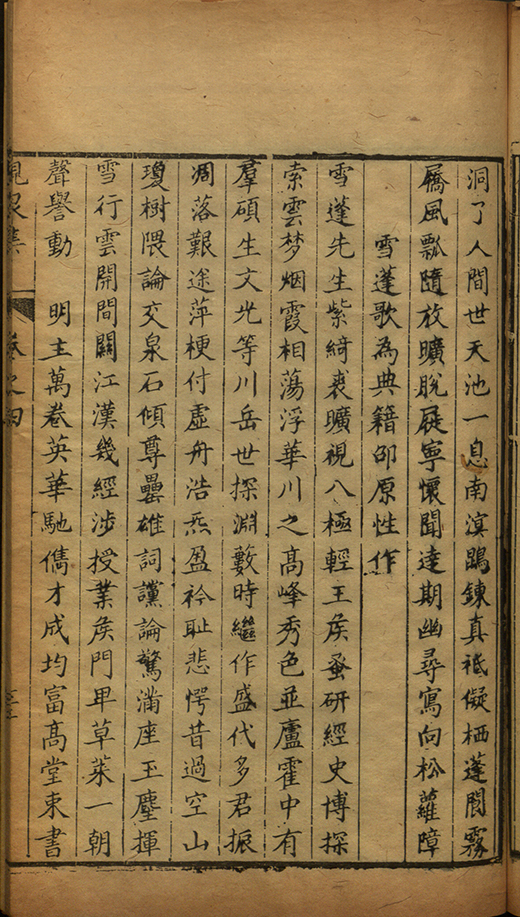 洞了人間世天池一息南溟鵾鍊真祗儗栖蓬閬霧
屩風瓢隨放曠脫屣寧懷聞達期幽尋寫向松蘿障
雪蓬歌為典籍邵原性作
雪蓬先生紫綺裘曠視八極輕王矦蚤研經史博探
索雲梦烟霞相蕩浮華川之高峰秀色並廬霍中有
羣碩生文光等川岳世探淵藪時繼作盛代多君振
凋落艱途萍梗付虛舟浩炁盈衿耻悲愕昔過空山
瓊樹隈論交泉石傾尊罍雄詞讜論驚滿座玉麈揮
雪行雲開間關江漢幾經涉授業矦門卑草萊一朝
聲譽動　明主萬卷英華馳儁才成均富高堂東書
峴泉集　卷之四